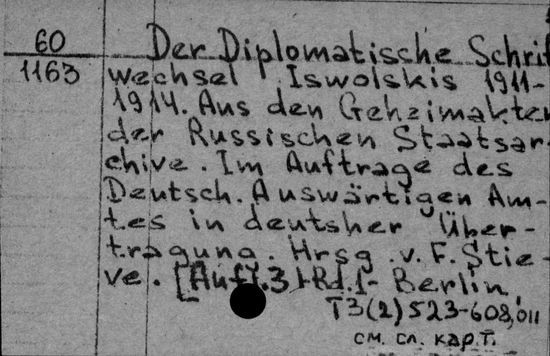 60
1163
Der Diplomatische Schrif
wechsel Iswolskis 1911-
1914. Aus den Geheimakten
der Russischen Staatsar-
chive. Im Auftrage des
Deutsch. Auswärtigen Am-
tes in deutsher Über-
tragung. Hrsg. v. F. Stie-
ve. [Aufl. 3] Bd. 1- Berlin,
T3(2)523-608,011
см. сл. карт.